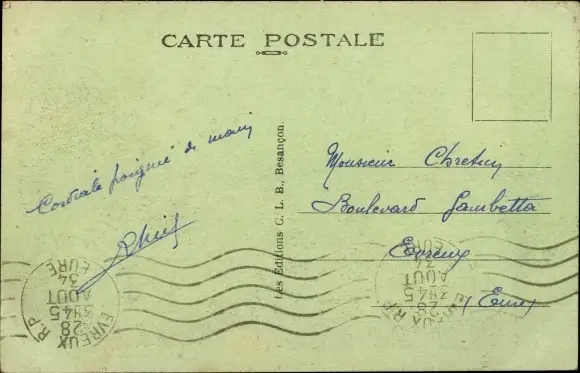 CARTE POSTALE
Cordiale poignée de main
Les Éditions C. L. B., Besançon
Monsieur Chretien
Boulevard Gambetta
Evreux
(Eure)
EVREUX R.P
28
3H45
AOUT
34
EURE
EVREUX R.P
28
3H45
AOUT
34
EURE